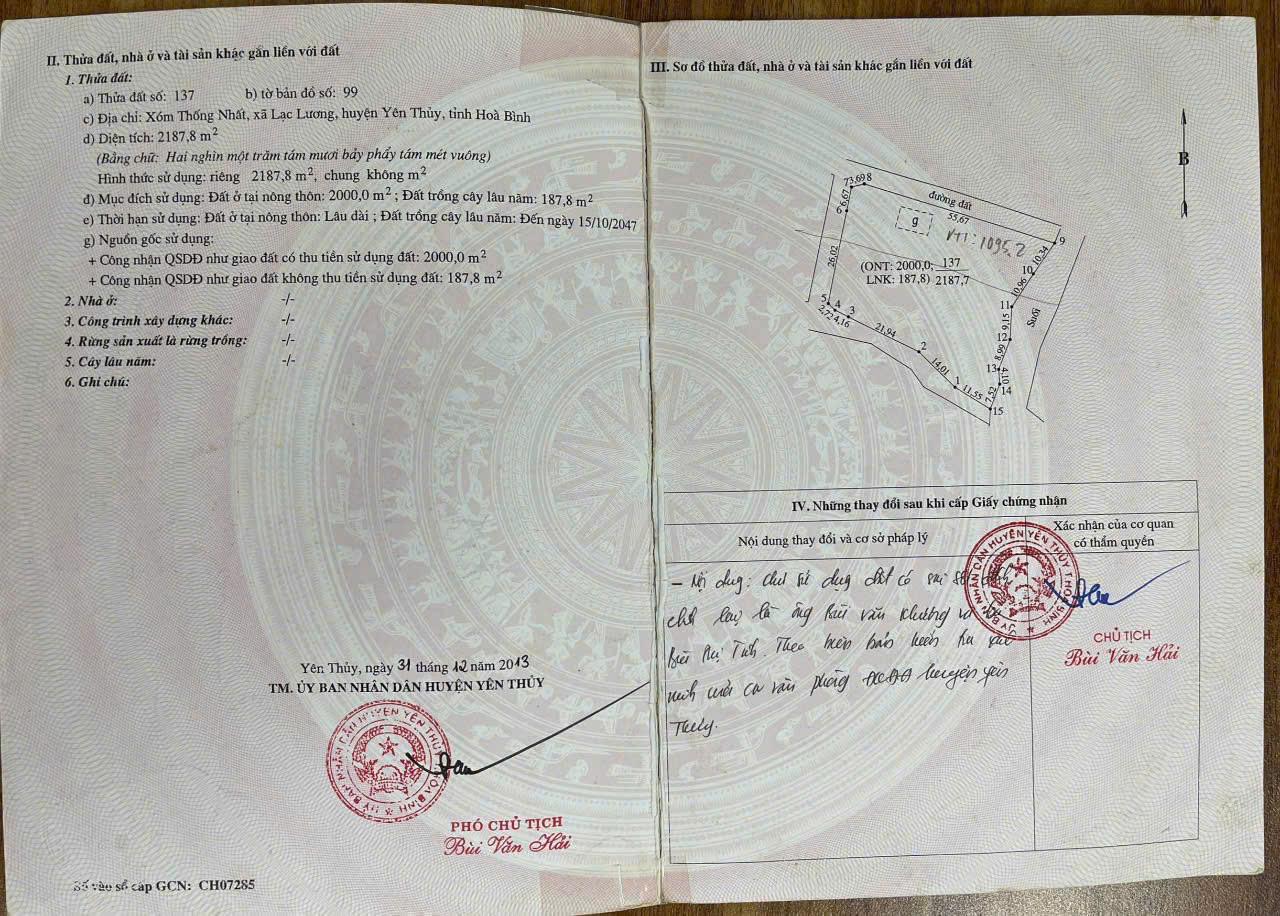 II. Thửa đất, nhà ở và tài sản khác gắn liền với đất
1. Thửa đất:
a) Thửa đất số: 137 b) tờ bản đồ số: 99
c) Địa chỉ: Xóm Thống Nhất, xã Lạc Lương, huyện Yên Thủy, tỉnh Hoà Bình
d) Diện tích: 2187,8 m²
(Bằng chữ: Hai nghìn một trăm tám mươi bảy phẩy tám mét vuông)
Hình thức sử dụng: riêng 2187,8 m², chung không m²
đ) Mục đích sử dụng: Đất ở tại nông thôn: 2000,0 m² ; Đất trồng cây lâu năm: 187,8 m²
e) Thời hạn sử dụng: Đất ở tại nông thôn: Lâu dài ; Đất trồng cây lâu năm: Đến ngày 15/10/2047
g) Nguồn gốc sử dụng:
+ Công nhận QSDĐ như giao đất có thu tiền sử dụng đất: 2000,0 m²
+ Công nhận QSDĐ như giao đất không thu tiền sử dụng đất: 187,8 m²
2. Nhà ở: -/-
3. Công trình xây dựng khác: -/-
4. Rừng sản xuất là rừng trồng: -/-
5. Cây lâu năm: -/-
6. Ghi chú:
Yên Thủy, ngày 31 tháng 12 năm 2013
TM. ỦY BAN NHÂN DÂN HUYỆN YÊN THỦY
PHÓ CHỦ TỊCH
Bùi Văn Hải
Số vào sổ cấp GCN: CH07285
III. Sơ đồ thửa đất, nhà ở và tài sản khác gắn liền với đất
B
73,69 8
đường đất
6,67
55,67
6
g
9
VTT: 1095,2
10,34
26,02
(ONT: 2000,0; 137
10
LNK: 187,8) 2187,7
10,96
5
4
3
11
2,72
4,16
9,15
Suối
21,94
12
2
8,99
14,01
13
4,10
1
11,55
7,52
14
15
IV. Những thay đổi sau khi cấp Giấy chứng nhận
Nội dung thay đổi và cơ sở pháp lý
Xác nhận của cơ quan
có thẩm quyền
- Nội dung: chủ sử dụng đất có
chỉ là ông Bùi văn Khương và
Bùi Thị Tình. Theo biên bản
minh của văn phòng huyện yên
Thủy.
CHỦ TỊCH
Bùi Văn Hải